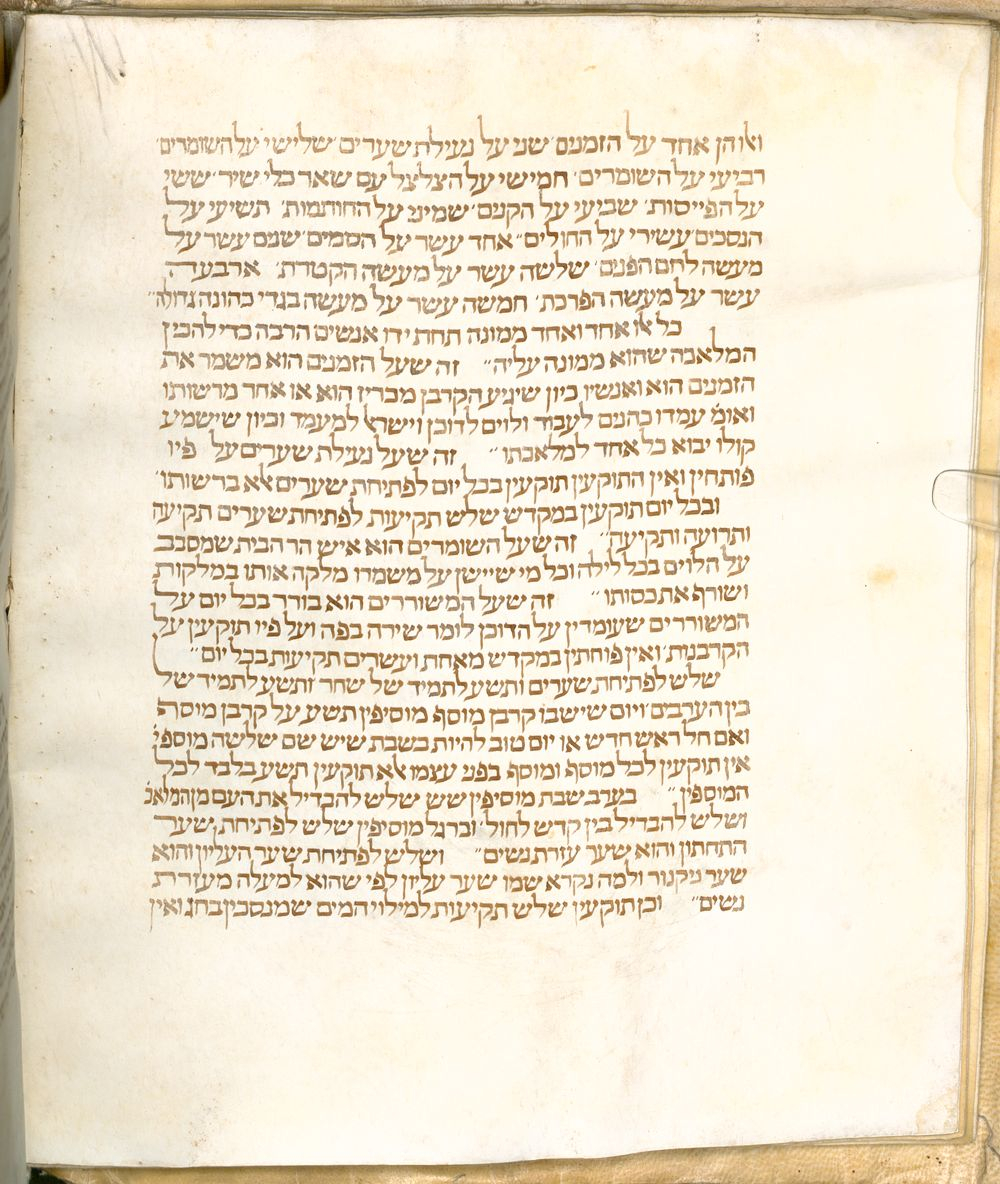 ואלו הן אחד על הזמנים׳ שני על נעילת שערים׳ שלישי׳ על השומרים׳
רביעי על השומרים׳ חמישי על הצלצל עם שאר כלי שיר׳ ששי
על הפייסות׳ שביעי על הקנים׳ שמיני על החותמות׳ תשיעי על
הנסכים׳ עשירי על החולים״ אחד עשר על הסמים׳ שנים עשר על
מעשה לחם הפנים׳ שלשה עשר על מעשה הקטרת׳ ארבעה
עשר על מעשה הפרכת׳ חמשה עשר על מעשה בגדי כהונה גדולה״
כל אלו אחד ואחד ממונה תחת ידו אנשים הרבה כדי להכין
המלאכה שהוא ממונה עליה״ זה שעל הזמנים הוא משמר את
הזמנים הוא ואנשיו כיון שיגיע הקרבן מכריז הוא או אחד מרשותו
ואומ׳ עמדו כהנים לעבוד ולוים לדוכן וישראל למעמד וכיון שישמע
קולו יבוא כל אחד למלאכתו״ זה שעל נעילת שערים על פיו
פותחין ואין התוקעין תוקעין בכל יום לפתיחת שערים אלא ברשותו׳
ובכל יום תוקעין במקדש שלש תקיעות לפתיחת שערים תקיעה
ותרועה ותקיעה״ זה שעל השומרים הוא איש הר הבית שמסבב
על הלוים בכל לילה וכל מי שיישן על משמרו מלקה אותו במלקות
ושורף את כסותו״ זה שעל המשוררים הוא בורר בכל יום על
המשוררים שעומדין על הדוכן לומר שירה בפה ועל פיו תוקעין על
הקרבנות׳ ואין פוחתין במקדש מאחת ועשרים תקיעות בכל יום״
שלש לפתיחת שערים ותשע לתמיד של שחר ותשע לתמיד של
בין הערבים׳ ויום שיש בו קרבן מוסף מוסיפין תשע על קרבן מוסף
ואם חל ראש חדש או יום טוב להיות בשבת שיש שם שלשה מוספי׳
אין תוקעין לכל מוסף ומוסף בפני עצמו אלא תוקעין תשע בלבד לכל
המוספין״ בערב שבת מוסיפין שש שלש להבדיל את העם מן המלאכ׳
ושלש להבדיל בין קדש לחול׳ וברגל מוסיפין שלש לפתיחת שער
התחתון והוא שער עזרת נשים״ ושלש לפתיחת שער העליון והוא
שער ניקנור ולמה נקרא שמו שער עליון לפי שהוא למעלה מעזרת
נשים״ וכן תוקעין שלש תקיעות למילוי המים שמנסכין בחג ואין